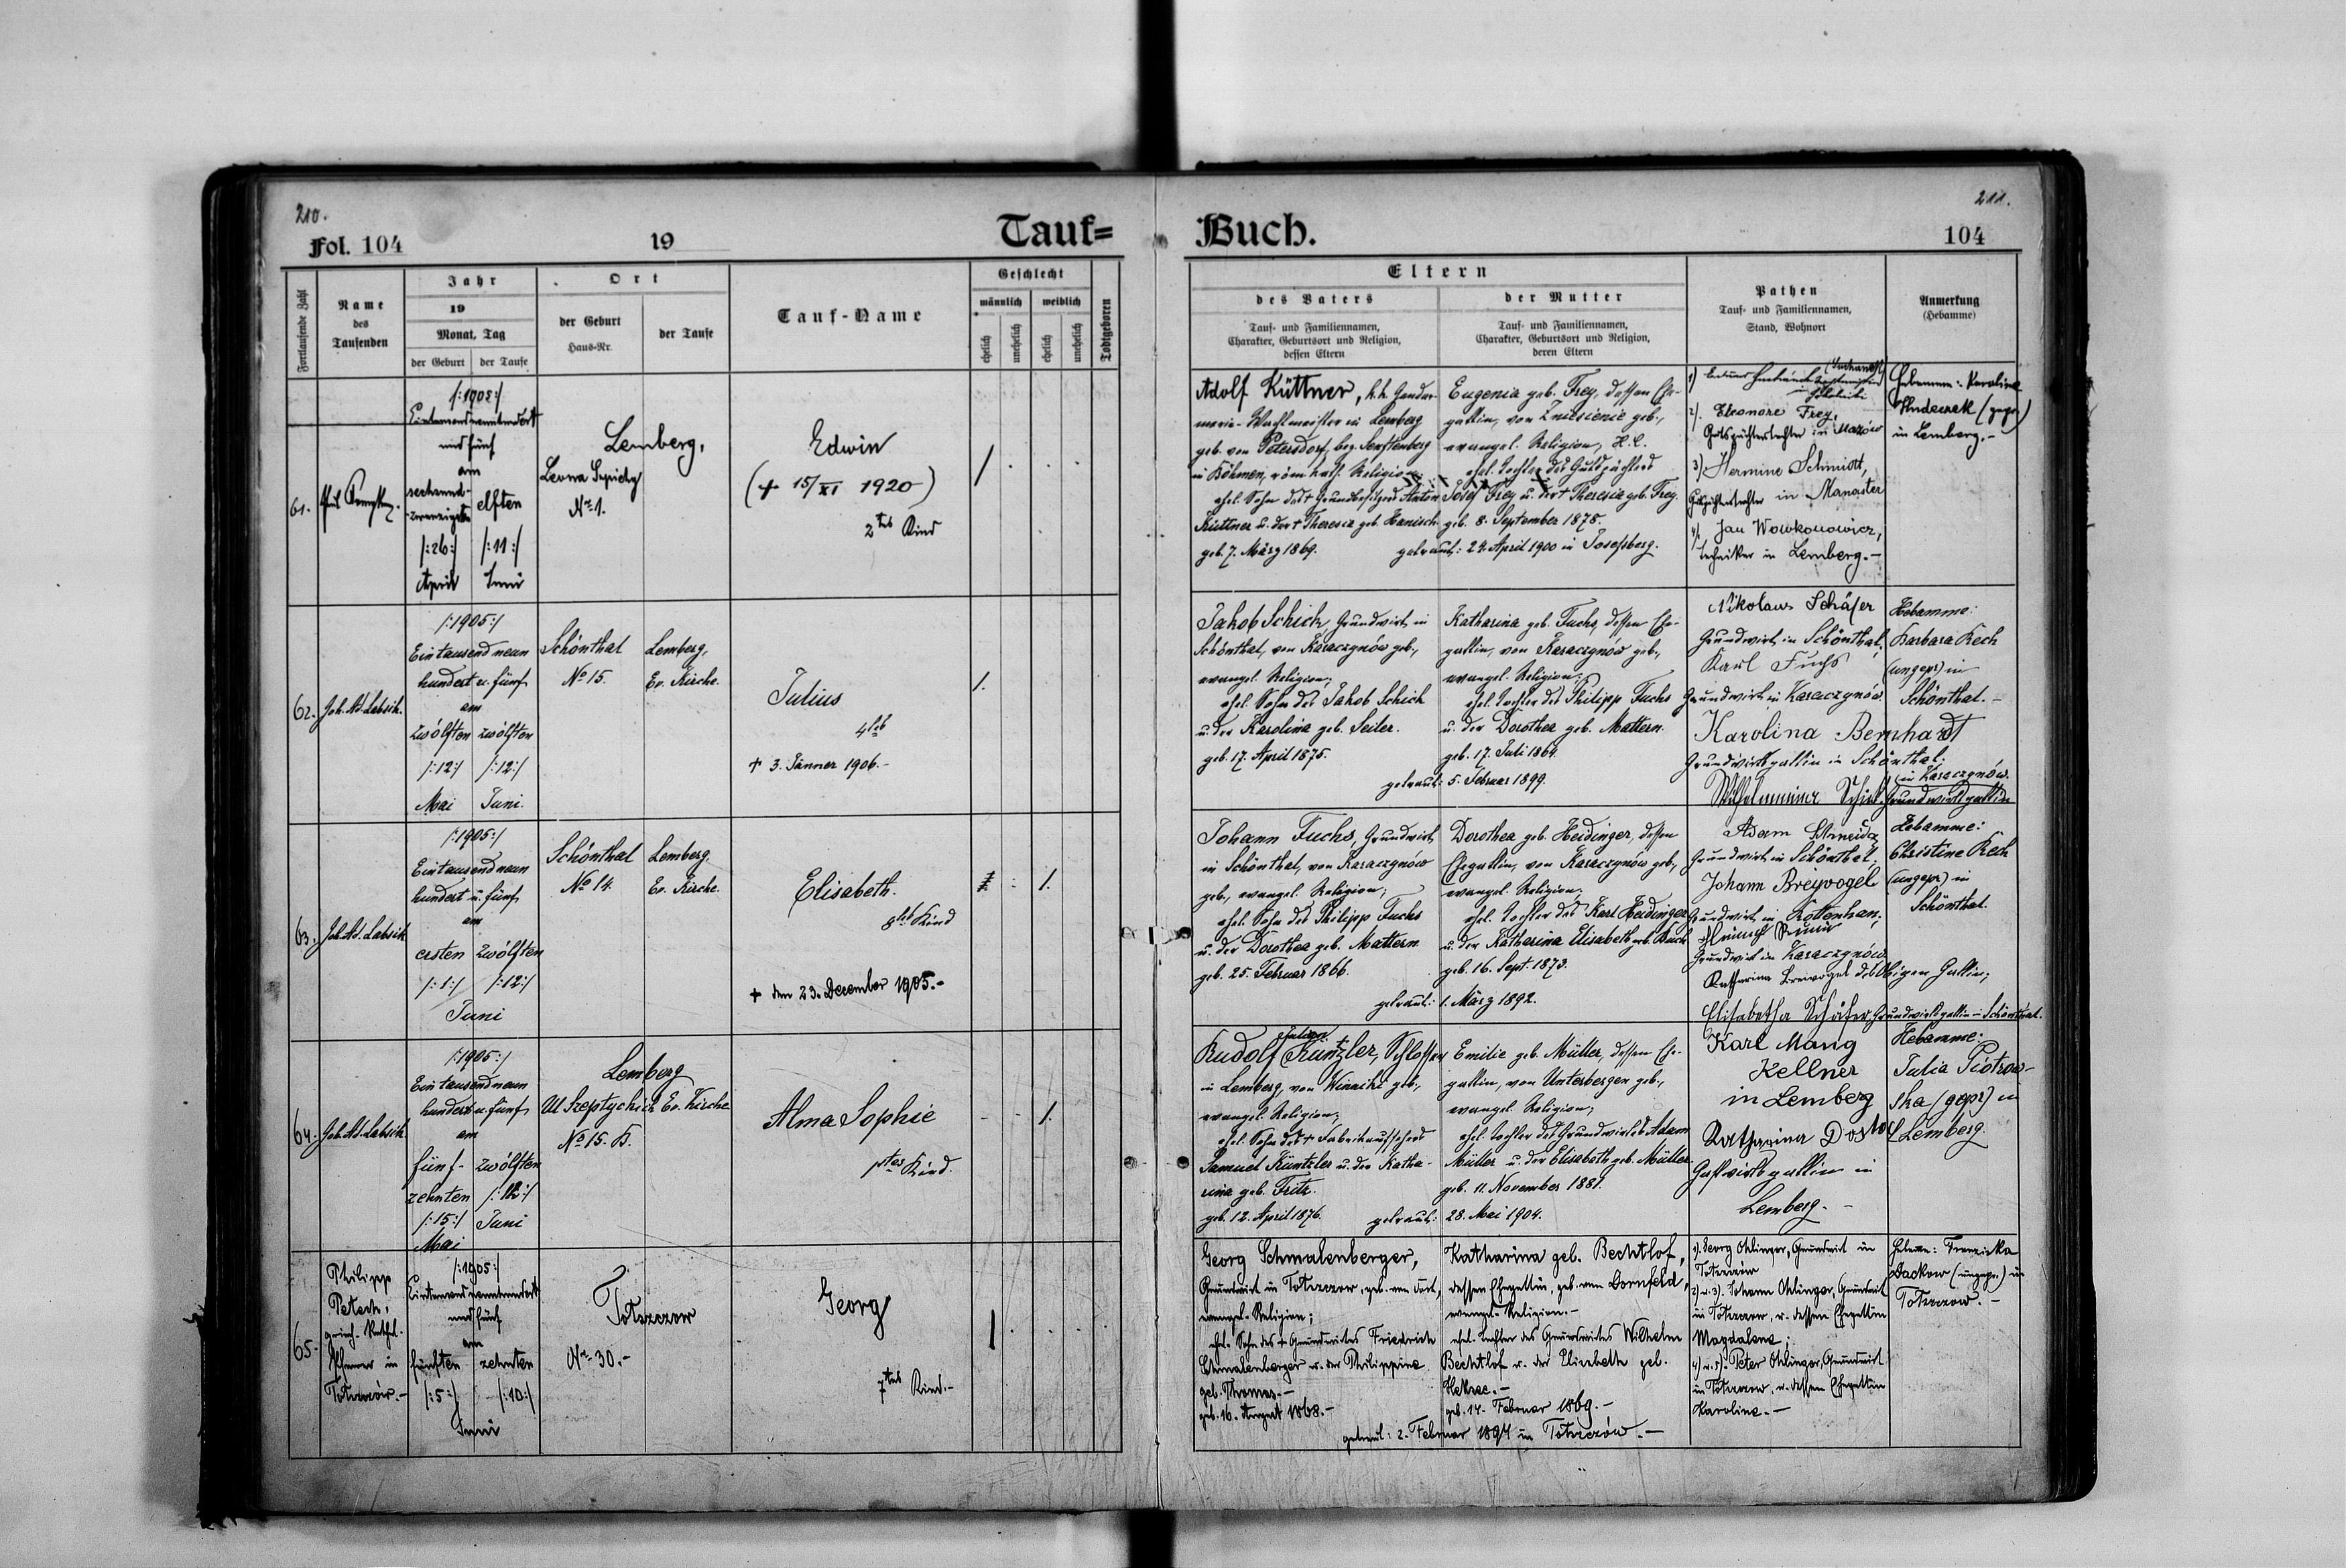 210.
Fol. 104
19
Tauf=
Fortlaufende Zahl
Name
des
Taufenden
Jahr
19
Monat, Tag
der Geburt
der Taufe
Ort
der Geburt
Haus-Nr.
der Taufe
Tauf-Name
Geschlecht
männlich
weiblich
ehelich
unehelich
ehelich
unehelich
Todtgeboren
61.
/:1905:/
Eintausendneunhundert
und fünf
am
sechsund-
zwanzigsten
elften
/:26:/
/:11:/
April
Juni
Lemberg,
Leona Sapiehy
No 1.
Edwin
(+ 15/XI 1920)
2tes Kind
62.
Joh. Ad. Labsik.
/:1905:/
Eintausend neun
hundert u. fünf
am
zwölften zwölften
/:12:/ /:12:/
Mai Juni.
Schönthal
No 15.
Lemberg,
Ev. Kirche.
Julius
4tes
+ 3. Jänner 1906.-
1.
63.
Joh. Ad. Labsik
/:1905:/
Eintausend neun
hundert u. fünf
am
ersten zwölften
/:1:/ /:12:/
Juni
Schönthal
No 14.
Lemberg.
Ev. Kirche.
Elisabeth.
8tes Kind
+ den 23. Dezember 1905.-
1.
64.
Joh. Ad. Labsik
/:1905:/
Eintausend neun
hundert u. fünf
am
fünf- zwölften
zehnten /:12:/
/:15:/ Juni
Mai
Lemberg
Ul Szeptyckich Ev. Kirche
No 15. B.
Alma Sophie
1tes Kind.
1.
65.
Philipp
Petsch,
griech.-kathol.
Pfarrer in
/:1905:/
Eintausendneunhundert
und fünf
am
fünften zehnten
/:5:/ /:10:/
Juni
Totszczow
No 30.-
Georg
7tes Kind.-
211.
Buch.
104
Eltern
des Vaters
Tauf- und Familiennamen,
Charakter, Geburtsort und Religion,
dessen Eltern
der Mutter
Tauf- und Familiennamen,
Charakter, Geburtsort und Religion,
deren Eltern
Pathen
Tauf- und Familiennamen,
Stand, Wohnort
Anmerkung
(Hebamme)
Adolf Küttner, k.k. Gendar-
merie-Wachtmeister in Lemberg
geb. von Petersdorf, bez. Senftenberg
in Böhmen, röm. kath. Religion;
ehel. Sohn des + Grundbesitzers Anton
Küttner u. der + Theresia geb. Hanisch
geb. 7. März 1869.
Eugenia geb. Frey, dessen Ehe-
gattin, von Zniesienie geb.,
evangel. Religion, H.C.
ehel. Tochter des Gutspächters
Josef Frey u. der + Theresia geb. Frey.
geb. 8. September 1878.
getraut: 29. April 1900 in Josefsberg.
2). Eleonore Frey,
Gutspächterstochter in Mazów
3). Hermine Schmidt,
Gutspächterstochter in Manaster
4). Jan Wowkonowicz,
Techniker in Lemberg.-
Hebamme: Karoline
in Lemberg.-
Jakob Schick, Grundwirt in
Schönthal, von Karaczynów geb.,
evangel. Religion;
ehel. Sohn des Jakob Schick
u. der Karolina geb. Seiler.
geb. 17. April 1875.
Katharina geb. Fuchs, dessen Ehe-
gattin, von Karaczynów geb.,
evangel. Religion;
ehel. Tochter des Philipp Fuchs
u. der Dorothea geb. Mattern.
geb. 17. Juli 1864.
getraut: 5. Februar 1899.
Nikolaus Schäfer
Grundwirt in Schönthal;
Karl Fuchs
Grundwirt in Karaczynów.
Karolina Bernhardt
Grundwirtsgattin in Schönthal;
Wilhelmine Schick Grundwirtsgattin
in Karaczynów.
Hebamme:
Barbara Kech
(ungepr.) in
Schönthal.-
Johann Fuchs, Grundwirt
in Schönthal, von Karaczynów
geb., evangel. Religion;
ehel. Sohn des Philipp Fuchs
u. der Dorothea geb. Mattern
geb. 25. Februar 1866.
Dorothea geb. Heidinger, dessen
Ehegattin, von Karaczynów geb.,
evangel. Religion;
ehel. Tochter des Karl Heidinger
u. der Katharina Elisabeth geb.
geb. 16. Sept. 1873.
getraut: 1. März 1892.
Adam Schneider
Grundwirt in Schönthal;
Johann Breiwogel
Grundwirt in Rottenhan;
Grundwirt in Karaczynów
Katharina Breiwogel des Obigen Gattin;
Elisabetha Schäfer Grundwirtsgattin - Schönthal.
Hebamme:
Christine Kech
(ungepr.) in
Schönthal.
Julian
Rudolf Küntzler, Schlosser
in Lemberg, von Winniki geb.,
evangel. Religion;
ehel. Sohn des + Fabriksaufsehers
Samuel Küntzler u. der Katha-
rina geb. Fritz.
geb. 12. April 1876.
Emilie geb. Müller, dessen Ehe-
gattin, von Unterbergen geb.,
evangel. Religion;
ehel. Tochter des Grundwirtes Adam
Müller u. der Elisabeth geb. Müller.
geb. 11. November 1881.
getraut: 28. Mai 1904.
Karl Mang
Kellner
in Lemberg
Katharina Dostal
Gastwirtsgattin in
Lemberg.-
Hebamme:
Julia Piotrow-
ska (gepr.) in
Lemberg.
Georg Schmalenberger,
Grundwirt in Totszczow, geb. von dort,
evangel. Religion;
ehel. Sohn des + Grundwirtes Friedrich
Schmalenberger u. der Philippine
geb. Thomas.-
geb. 16. August 1868.-
Katharina geb. Bechtlof,
dessen Ehegattin, geb. von Dornfeld,
evangel. Religion.-
ehel. Tochter des Grundwirtes Wilhelm
Bechtlof u. der Elisabeth geb.
geb. 14. Februar 1869.-
getraut: 2. Februar 1894 in Totszczów.-
1). Georg Ohlinger, Grundwirt in
Totszczów
2) u. 3). Johann Ohlinger, Grundwirt
in Totszczow, u. dessen Ehegattin
Magdalena;
4) u. 5). Peter Ohlinger, Grundwirt
in Totszczow, u. dessen Ehegattin
Karoline.-
Hebamme: Franziska
Dackow (ungepr.) in
Totszczow.-